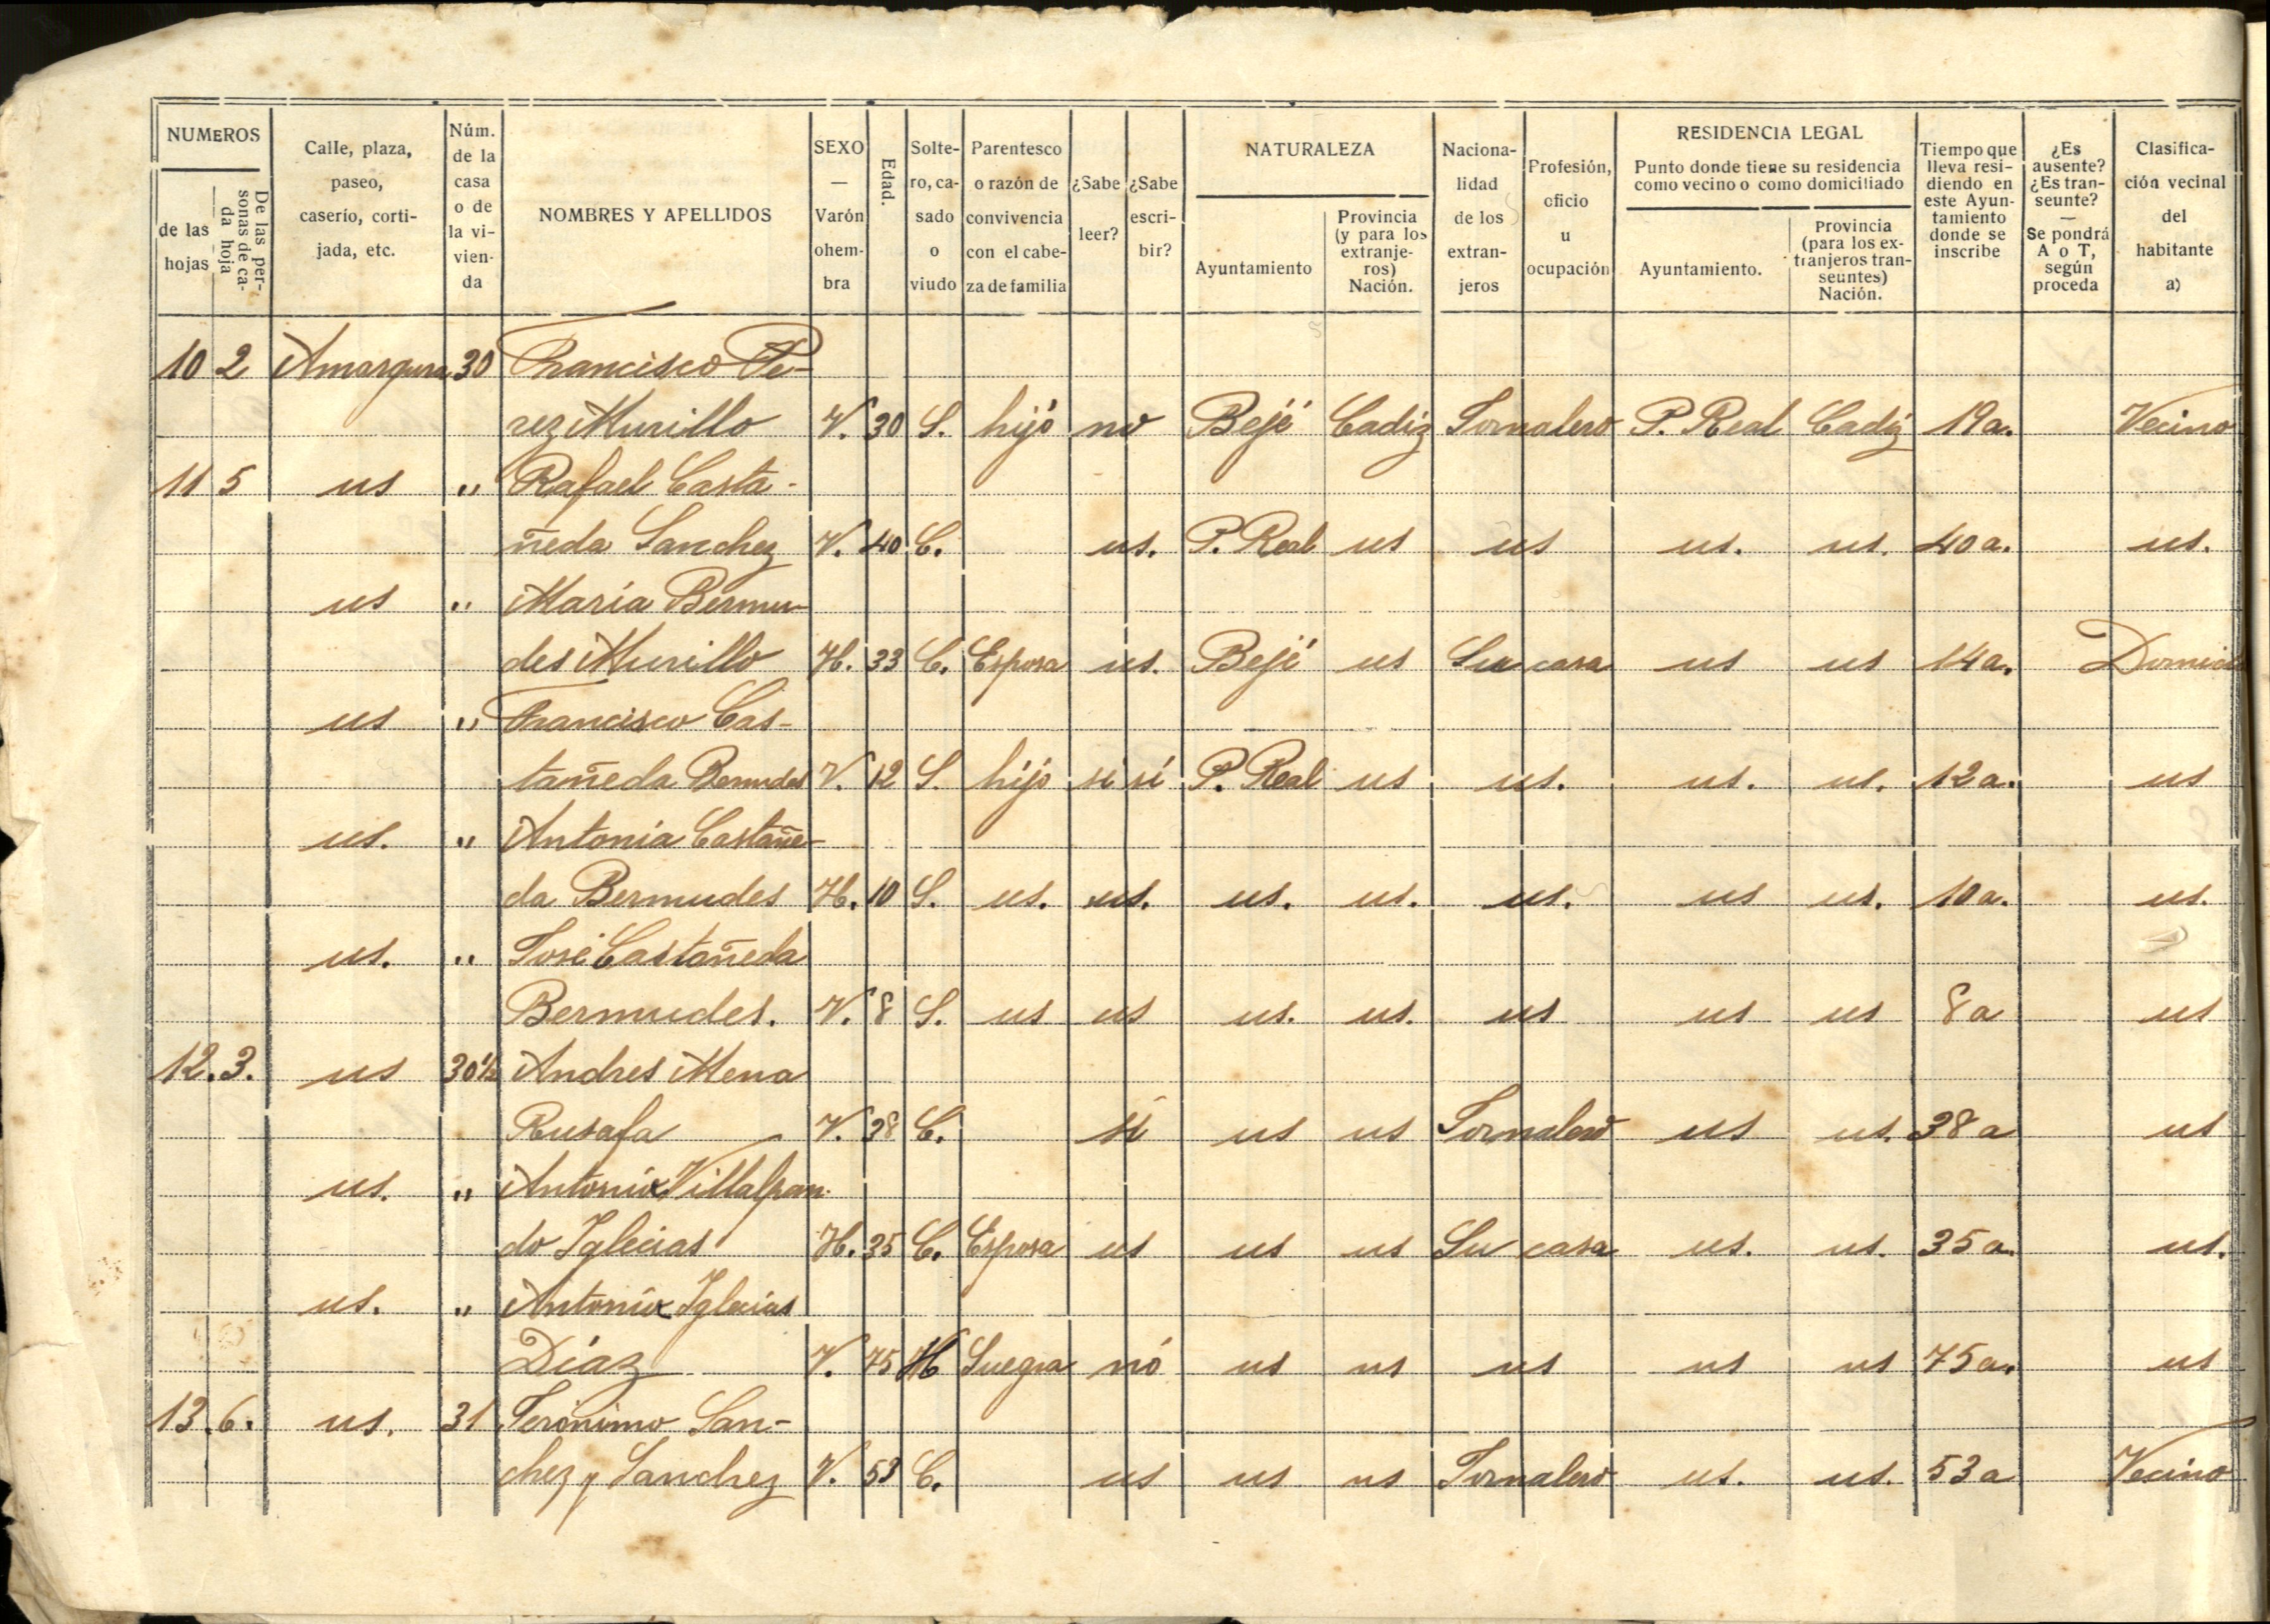 NUMEROS
de las hojas
De las personas de cada hoja
Calle, plaza, paseo, caserío, cortijada, etc.
Núm. de la casa o de la vivienda
NOMBRES Y APELLIDOS
SEXO — Varón o hembra
Edad.
Soltero, casado o viudo
Parentesco o razón de convivencia con el cabeza de familia
¿Sabe leer?
¿Sabe escribir?
NATURALEZA
Ayuntamiento
Provincia (y para los extranjeros) Nación.
Nacionalidad de los extranjeros
Profesión, oficio u ocupación
RESIDENCIA LEGAL
Punto donde tiene su residencia como vecino o como domiciliado
Ayuntamiento.
Provincia (para los extranjeros transeuntes) Nación.
Tiempo que lleva residiendo en este Ayuntamiento donde se inscribe
¿Es ausente? ¿Es transeunte? — Se pondrá A o T, según proceda
Clasificación vecinal del habitante a)
10 2 Amargura 30 Francisco Pe-
rez Murillo V. 30 S. hijo no Bejé Cadiz Jornalero P. Real Cadiz 19 a. Vecino
11 5 us " Rafael Casta-
ñeda Sanchez V. 40 C. us. P. Real us us us. us. 40 a. us.
us " Maria Bermu-
des Murillo H. 33 C. Esposa us. Bejé us Su casa us us 14 a. Domici
us " Francisco Cas-
tañeda Bermudes V. 12 S. hijo si si P. Real us us. us. us. 12 a. us
us. " Antonia Castañe-
da Bermudes H. 10 S. us. us. us. us. us. us us. 10 a. us.
us. " José Castañeda
Bermudes. V. 8 S. us us us. us. us us us 8 a us
12. 3. us 30½ Andres Mena
Rusafa V. 38 C. si us us Jornalero us us. 38 a us
us. " Antonia Villalpan-
do Iglecias H. 35 C. Esposa us us us Su casa us. us. 35 a. us.
us. " Antonia Iglecias
Díaz V. 75 H Suegra nó us us us us us 75 a. us
13. 6. us. 31 Jeronimo San-
chez y Sanchez V. 53 C. us us us Jornalero us. us. 53 a Vecino